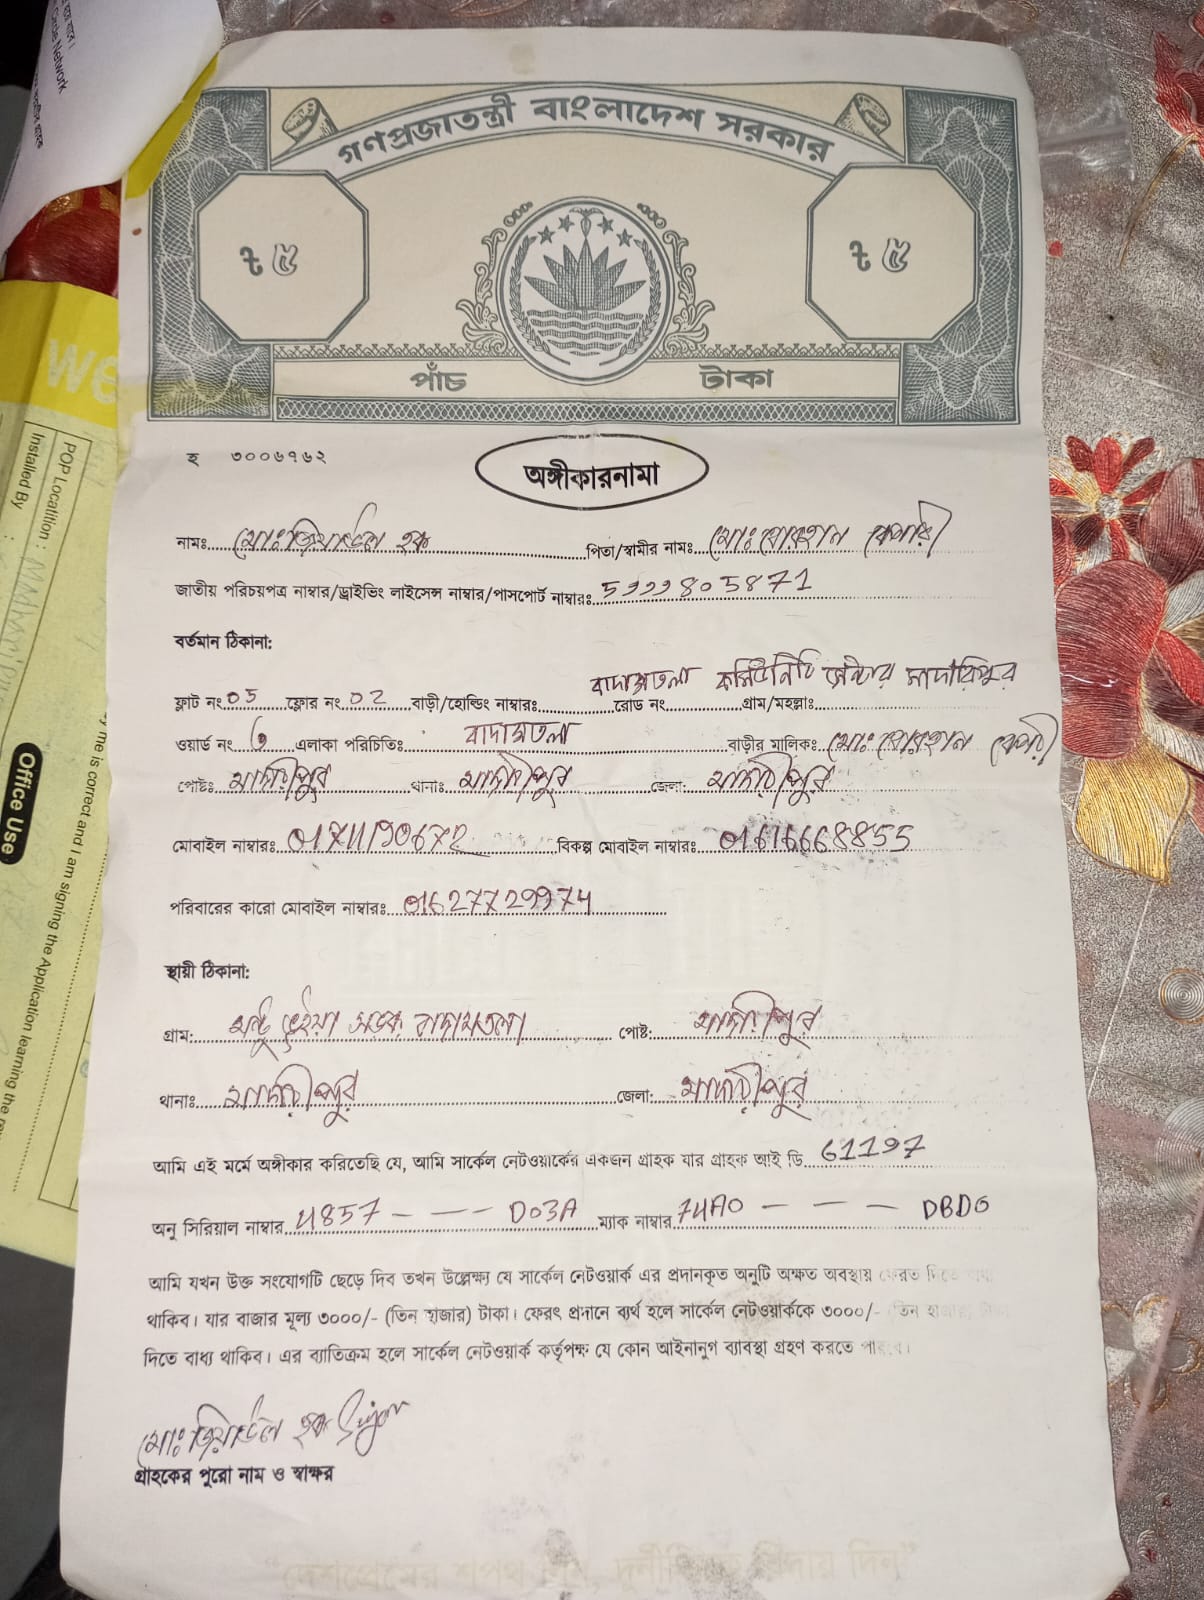 গণপ্রজাতন্ত্রী বাংলাদেশ সরকার
৳ ৫ ৳ ৫
পাঁচ টাকা
হ ৩০০৬৭৬২
অঙ্গীকারনামা
নামঃ মোঃ জিয়াউল হক পিতা/স্বামীর নামঃ মোঃ বোরহান বেপারী
জাতীয় পরিচয়পত্র নাম্বার/ড্রাইভিং লাইসেন্স নাম্বার/পাসপোর্ট নাম্বারঃ
বর্তমান ঠিকানা:
বাদামতলা কমিউনিটি সেন্টার মাদারিপুর
ফ্লাট নং 05 ফ্লোর নং 02 বাড়ী/হোল্ডিং নাম্বারঃ রোড নং গ্রাম/মহল্লাঃ
ওয়ার্ড নং এলাকা পরিচিতিঃ বাদামতলা বাড়ীর মালিকঃ মোঃ বোরহান বেপারী
পোষ্টঃ মাদারীপুর থানাঃ মাদারীপুর জেলা: মাদারীপুর
মোবাইল নাম্বারঃ 01711190672 বিকল্প মোবাইল নাম্বারঃ 01616668855
পরিবারের কারো মোবাইল নাম্বারঃ 01627729974
স্থায়ী ঠিকানা:
গ্রাম: মন্টু ভূঁইয়া সড়ক বাদামতলা পোষ্ট: মাদারীপুর
থানাঃ মাদারীপুর জেলা: মাদারীপুর
আমি এই মর্মে অঙ্গীকার করিতেছি যে, আমি সার্কেল নেটওয়ার্কের একজন গ্রাহক যার গ্রাহক আই ডি 61197
অনু সিরিয়াল নাম্বার 4857 - - - D03A ম্যাক নাম্বার 74A0 - - - DBD0
আমি যখন উক্ত সংযোগটি ছেড়ে দিব তখন উল্লেক্ষ্য যে সার্কেল নেটওয়ার্ক এর প্রদানকৃত অনুটি অক্ষত অবস্থায় ফেরত দিতে বাধ্য
থাকিব। যার বাজার মূল্য ৩০০০/- (তিন হাজার) টাকা। ফেরৎ প্রদানে ব্যর্থ হলে সার্কেল নেটওয়ার্ককে ৩০০০/- তিন হাজার টাকা
দিতে বাধ্য থাকিব। এর ব্যাতিক্রম হলে সার্কেল নেটওয়ার্ক কর্তৃপক্ষ যে কোন আইনানুগ ব্যাবস্থা গ্রহণ করতে পারবে।
মোঃ জিয়াউল হক
গ্রাহকের পুরো নাম ও স্বাক্ষর
"দেশপ্রেমের শপথ নিন, দুর্নীতিকে বিদায় দিন"
we
POP Location :
Installed By :
Office Use
y me is correct and I am signing the Application learning the
Circle Network